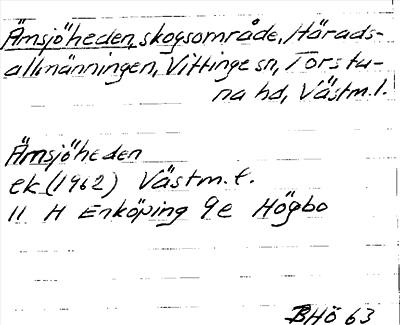 Ämsjöheden, skogsområde, Härads-
allmänningen, Vittinge sn, Torstu-
na hd, Västm.l.
Ämsjöheden
ek (1962) Västm. l.
11 H Enköping 9e Högbo
BHö 63